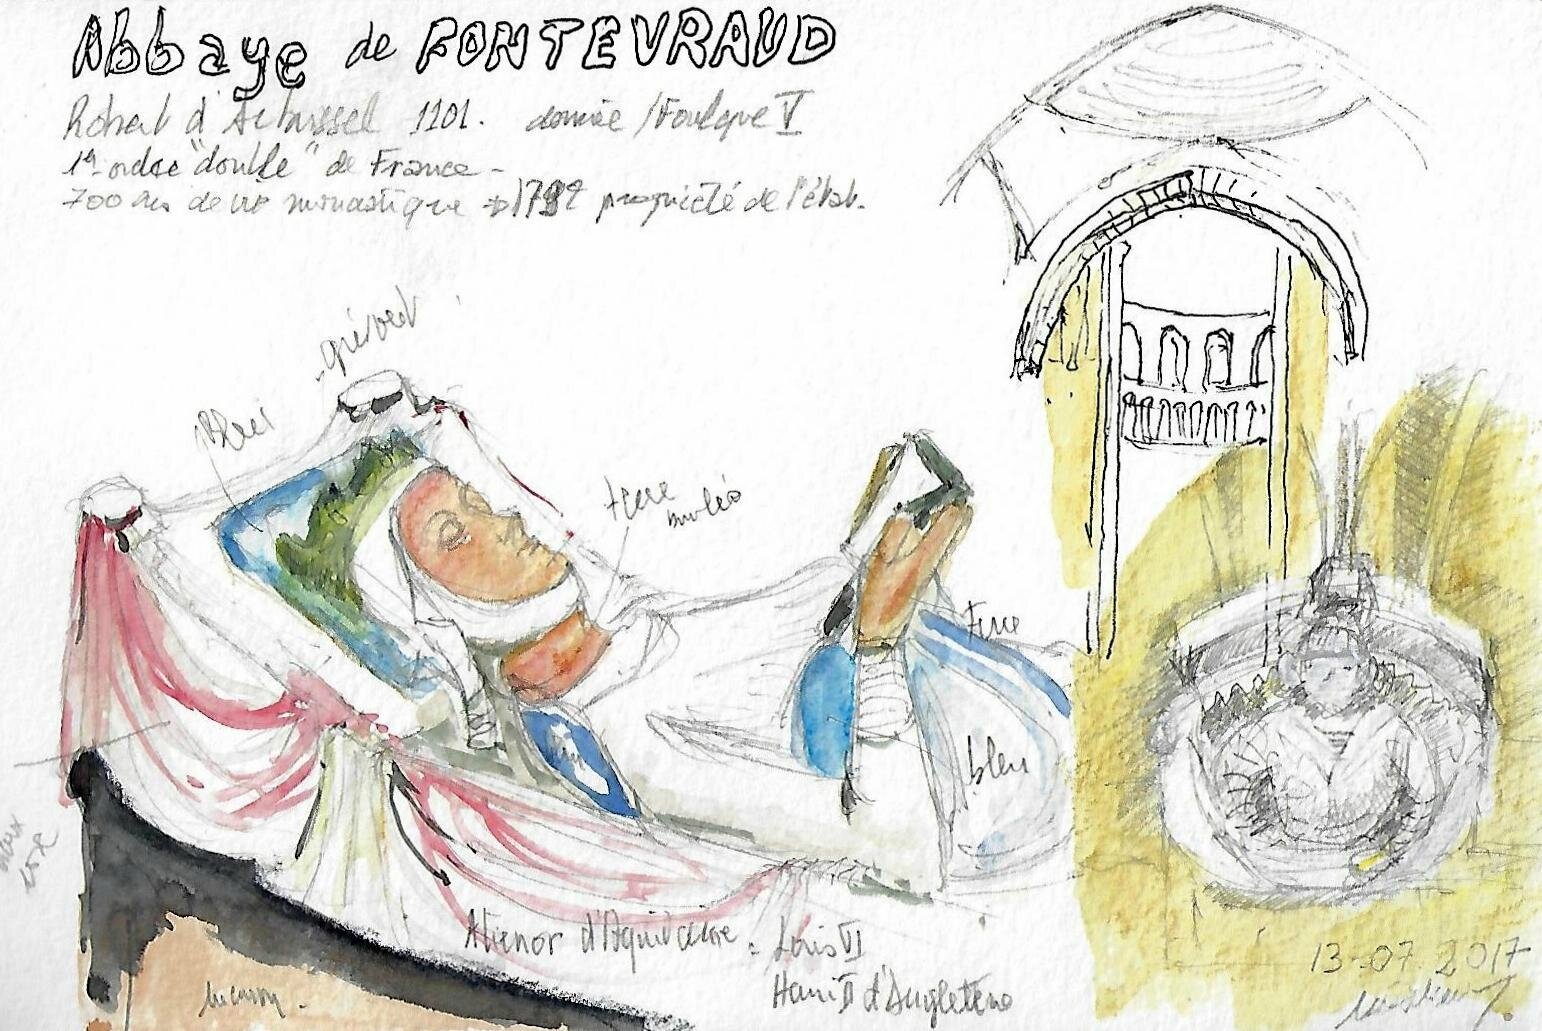 Abbaye de FONTEVRAUD
Robert d'Arbrissel 1101. donnée /Foulque V
1er ordre "double" de France -
700 ans de vie monastique → 1792 propriété de l'état.
- gris vert
Bleu
terre
Terre
bleu
Alienor d'Aquitaine - Louis VI
Henri II d'Angleterre
13-07 2017